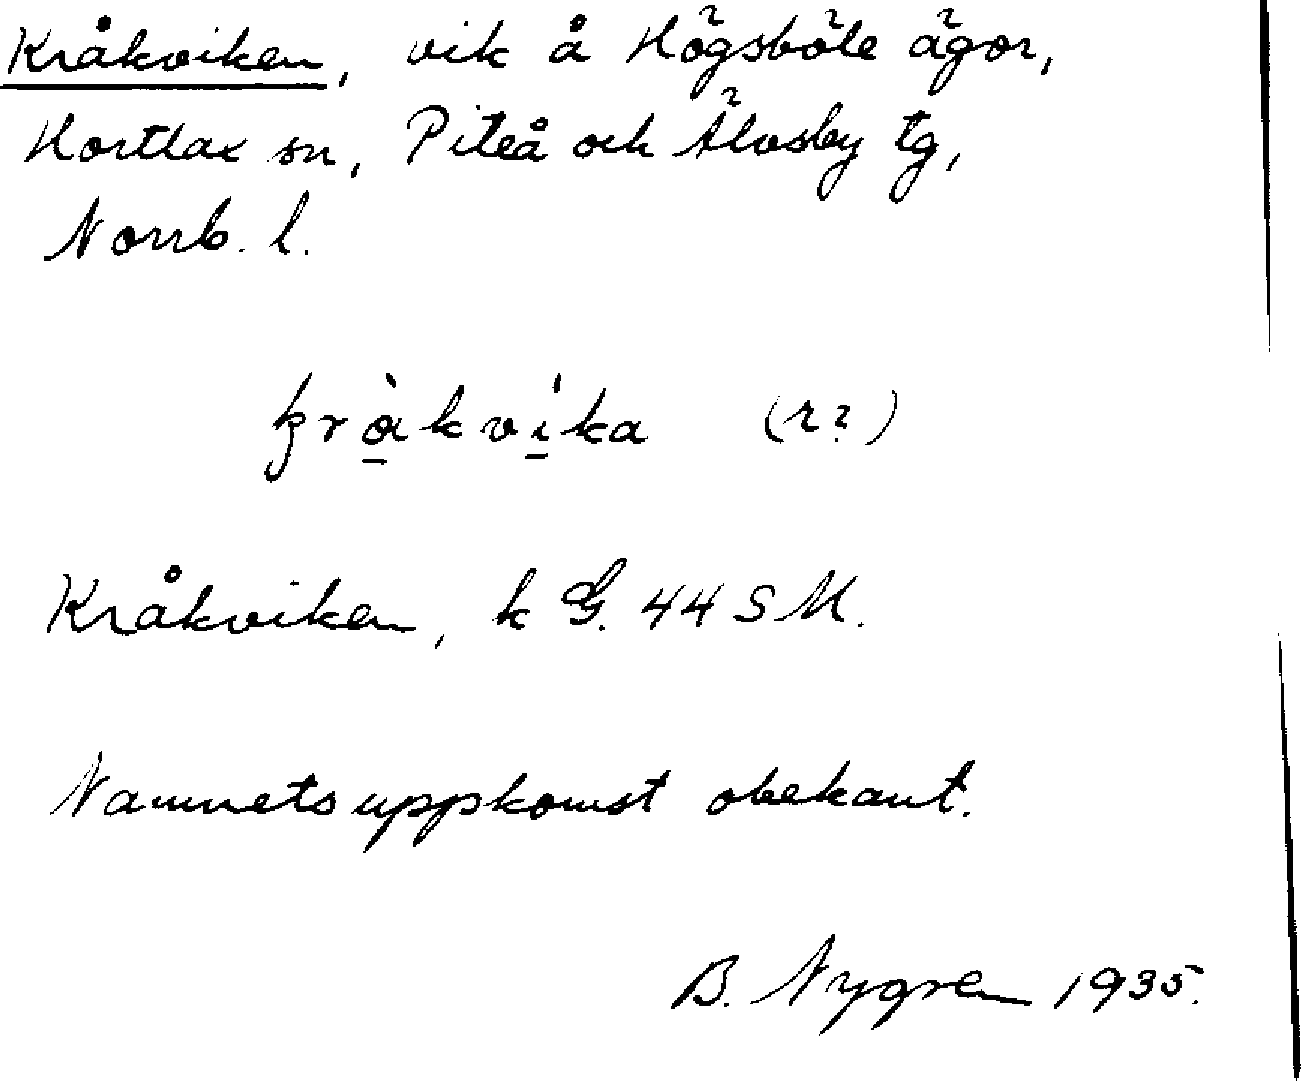 Kråkviken, vik å Högsböle ägor,
Hortlax sn, Piteå och Älvsby tg,
Norrb. l.
kràkvíka (r?)
Kråkviken, k G. 44 S M.
Namnets uppkomst obekant.
B. Nygren 1935.